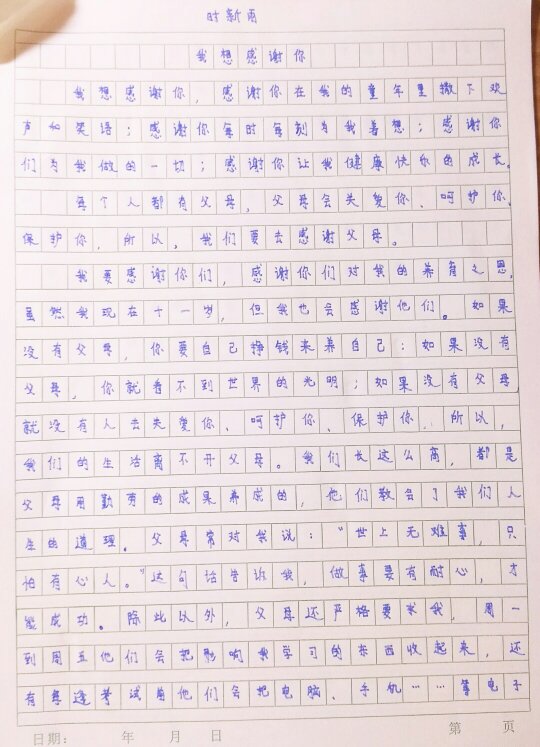 时新雨
我想感谢你
我想感谢你，感谢你在我的童年里撒下欢
声和笑语；感谢你每时每刻为我着想；感谢你
们为我做的一切；感谢你让我健康快乐的成长。
每个人都有父母，父母会关爱你、呵护你、
保护你，所以。我们要去感谢父母。
我要感谢你们，感谢你们对我的养育之恩，
虽然我现在十一岁，但我也会感谢他们。如果
没有父母，你要自己挣钱来养自己；如果没有
父母，你就看不到世界的光明；如果没有父母，
就没有人去关爱你、呵护你、保护你。所以，
我们的生活离不开父母。我们长这么高，都是
父母用勤劳的成果养成的，他们教会了我们人
生的道理。父母常对我说：“世上无难事，只
怕有心人。”这句话告诉我，做事要有耐心，才
能成功。除此以外，父母还严格要求我，周一
到周五他们会把影响我学习的东西收起来，还
有每逢考试前他们会把电脑、手机……等电子
日期： 年 月 日 第 页